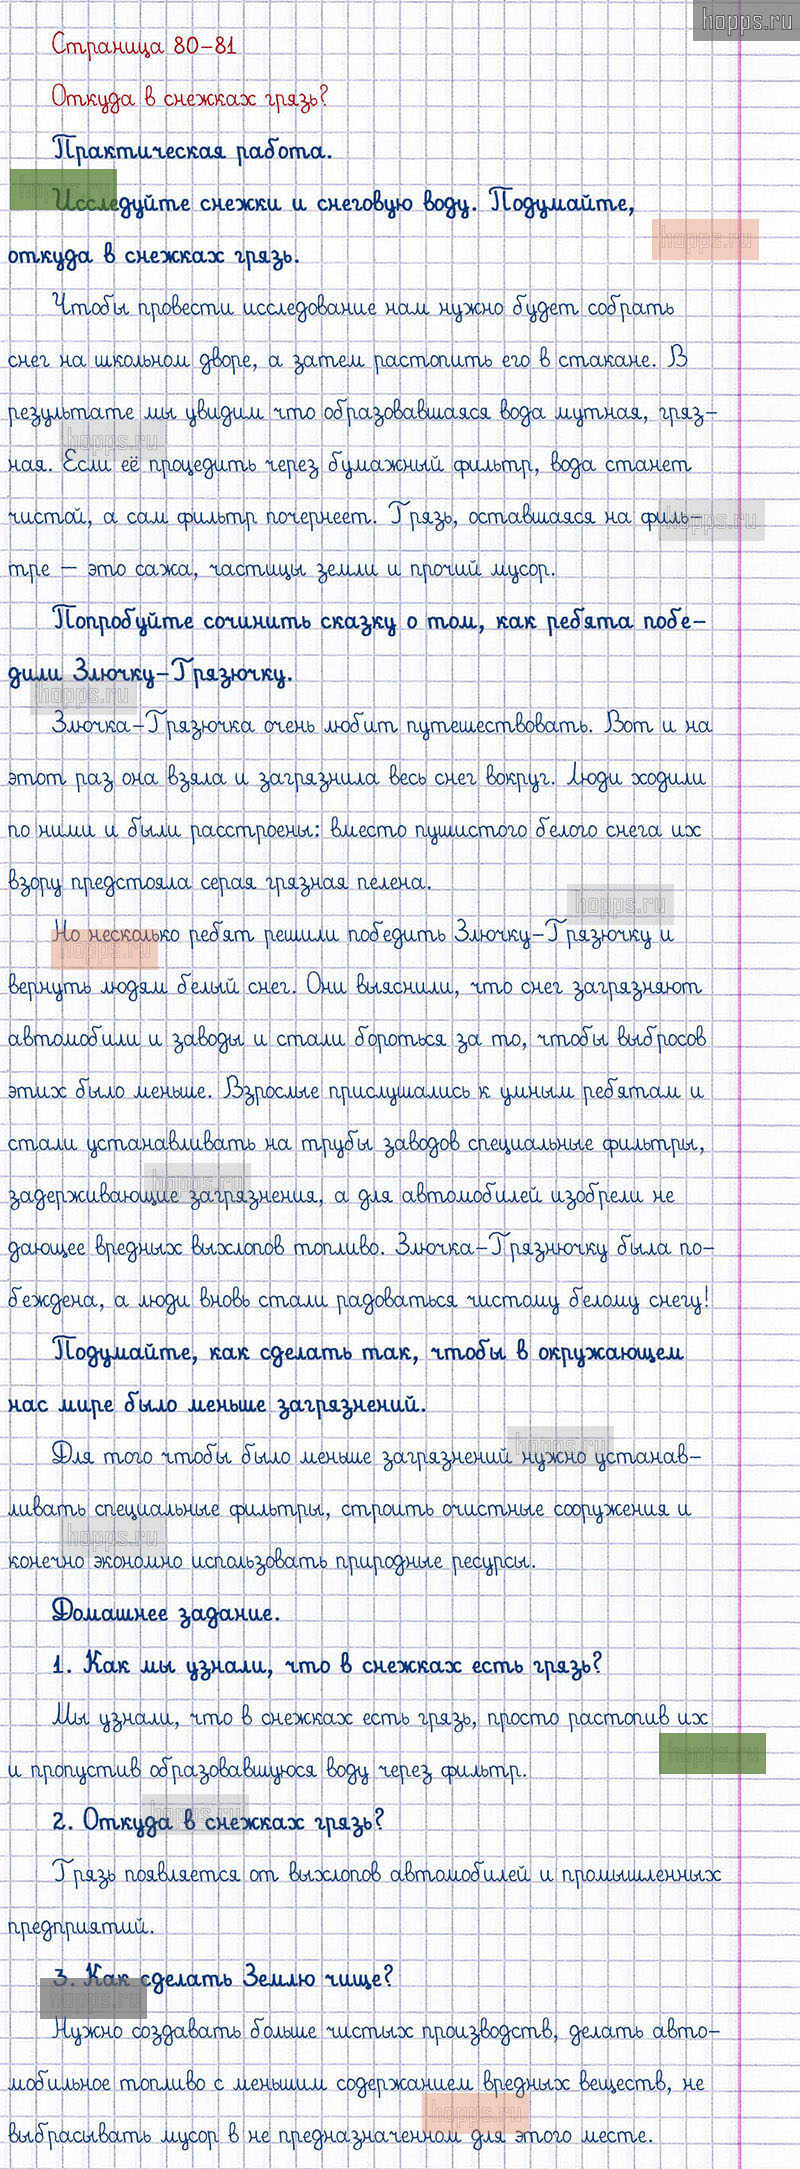 hopps.ru
Страница 80-81
Откуда в снежках грязь?
Практическая работа.
Исследуйте снежки и снеговую воду. Подумайте,
откуда в снежках грязь.
Чтобы провести исследование нам нужно будет собрать
снег на школьном дворе, а затем растопить его в стакане. В
результате мы увидим что образовавшаяся вода мутная, гряз-
ная. Если её процедить через бумажный фильтр, вода станет
чистой, а сам фильтр почернеет. Грязь, оставшаяся на филь-
тре – это сажа, частицы земли и прочий мусор.
Попробуйте сочинить сказку о том, как ребята побе-
дили Злючку-Грязючку.
Злючка-Грязючка очень любит путешествовать. Вот и на
этот раз она взяла и загрязнила весь снег вокруг. Люди ходили
по ними и были расстроены: вместо пушистого белого снега их
взору предстояла серая грязная пелена.
Но несколько ребят решили победить Злючку-Грязючку и
вернуть людям белый снег. Они выяснили, что снег загрязняют
автомобили и заводы и стали бороться за то, чтобы выбросов
этих было меньше. Взрослые прислушались к умным ребятам и
стали устанавливать на трубы заводов специальные фильтры,
задерживающие загрязнения, а для автомобилей изобрели не
дающее вредных выхлопов топливо. Злючка-Грязнючку была по-
беждена, а люди вновь стали радоваться чистому белому снегу!
Подумайте, как сделать так, чтобы в окружающем
нас мире было меньше загрязнений.
Для того чтобы было меньше загрязнений нужно устанав-
ливать специальные фильтры, строить очистные сооружения и
конечно экономно использовать природные ресурсы.
Домашнее задание.
1. Как мы узнали, что в снежках есть грязь?
Мы узнали, что в снежках есть грязь, просто растопив их
и пропустив образовавшуюся воду через фильтр.
2. Откуда в снежках грязь?
Грязь появляется от выхлопов автомобилей и промышленных
предприятий.
3. Как сделать Землю чище?
Нужно создавать больше чистых производств, делать авто-
мобильное топливо с меньшим содержанием вредных веществ, не
выбрасывать мусор в не предназначенном для этого месте.